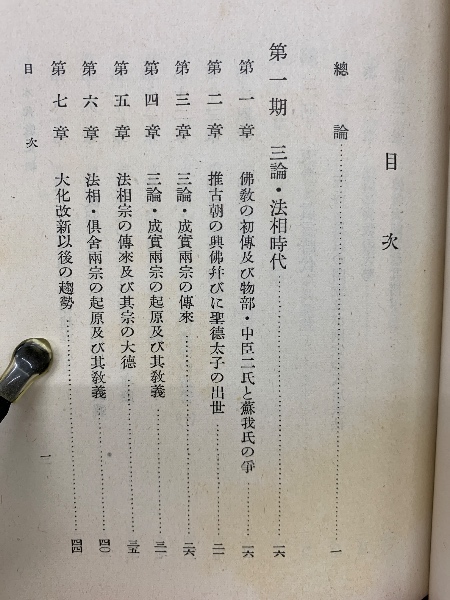 目次
總論……一
第一期 三論・法相時代……一六
第一章 佛敎の初傳及び物部・中臣二氏と蘇我氏の爭……一六
第二章 推古朝の興佛幷びに聖德太子の出世……二一
第三章 三論・成實兩宗の傳來……二六
第四章 三論・成實兩宗の起原及び其敎義……三一
第五章 法相宗の傳來及び其宗の大德……三五
第六章 法相・俱舍兩宗の起原及び其敎義……四〇
第七章 大化改新以後の趨勢……四四
目次
一